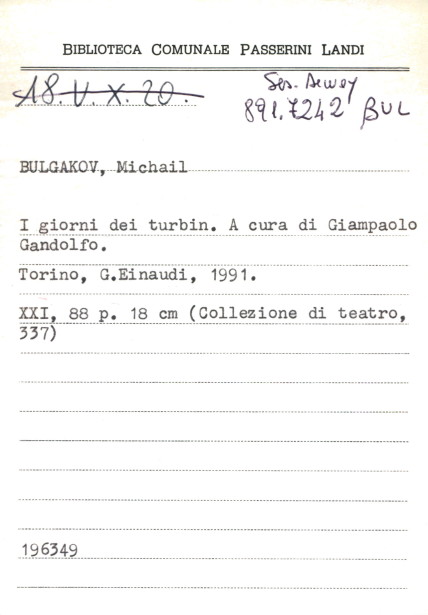 BIBLIOTECA COMUNALE PASSERINI LANDI
18.V.X.20.
Ses. Dewey
891.7242 BUL
BULGAKOV, Michail
I giorni dei turbin. A cura di Giampaolo
Gandolfo.
Torino, G.Einaudi, 1991.
XXI, 88 p. 18 cm (Collezione di teatro,
337)
196349